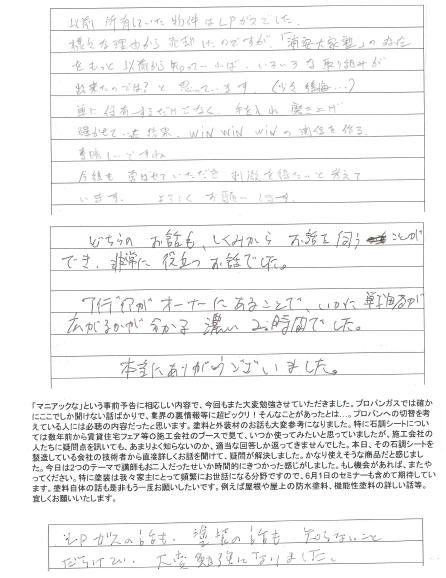 以前 所有していた物件はLPガスでした。
様々な理由から売却したのですが、「浦安大家塾」の存在
をもっと以前から知っていれば、いろいろな取り組みが
出来たのでは?と思っています。(少々後悔…)
単に保有するだけでなく、手を入れ 磨き上げ
曜させていった結果、WIN WIN WINの関係を作る。
素晴しいですね
今後も 学ばせていただき 刺激を得たいと考えて
います。 よろしくお願いします。
どちらの お話も、しくみから お話を伺うことが
でき、非常に 役立つ お話でした。
アイデアがオーナーにあることで、いかに 戦略が
広がるかが分かる 濃い 2時間でした。
本当にありがとうございました。
「マニアックな」という事前予告に相応しい内容で、今回もまた大変勉強させていただきました。プロパンガスでは確か
にここでしか聞けない話ばかりで、業界の裏情報等に超ビックリ！そんなことがあったとは…。プロパンへの切替を考
えている人には必聴の内容だったと思います。塗料と外装材のお話も大変参考になりました。特に石調シートについ
ては数年前から賃貸住宅フェア等の施工会社のブースで見て、いつか使ってみたいと思っていましたが、施工会社の
人たちに疑問点を訊いても、あまりよく知らないのか、適当な回答しか返ってきませんでした。本日、その石調シートを
製造している会社の技術者から直接詳しくお話を聞けて、疑問が解決しました。かなり使えそうな商品だと感じまし
た。今日は2つのテーマで講師もお二人だったせいか時間的にきつかった感じがしました。もし機会があれば、またやっ
てください。特に塗装は我々家主にとって頻繁にお世話になる分野ですので、6月1日のセミナーも含めて期待してい
ます。塗料自体の話も是非もう一度お願いしたいです。例えば屋根や屋上の防水塗料、機能性塗料の詳しい話等。
宜しくお願いいたします。
LPガスの話も、塗装の話も 知らないこと
だらけでい、大変勉強になりました。